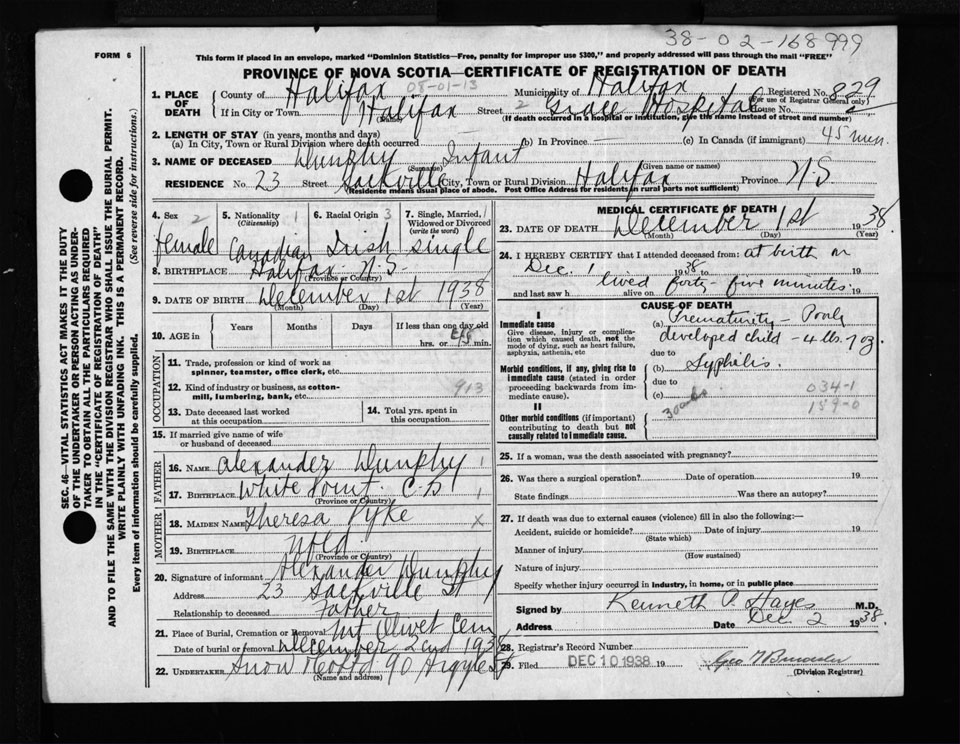 38-02-168999
FORM 6
This form if placed in an envelope, marked "Dominion Statistics—Free, penalty for improper use $300," and properly addressed will pass through the mail "FREE"
PROVINCE OF NOVA SCOTIA—CERTIFICATE OF REGISTRATION OF DEATH
1. PLACE OF DEATH
County of Halifax Municipality of Halifax Registered No. 829
08-01-13
(For use of Registrar General only)
If in City or Town Halifax Street 2 Grace Hospital House No.
(Name)
(If death occurred in a hospital or institution, give the name instead of street and number)
2. LENGTH OF STAY (in years, months and days)
(a) In City, Town or Rural Division where death occurred (b) In Province — (c) In Canada (if immigrant) 45 min.
3. NAME OF DECEASED Dunphy Infant
(Surname) (Given name or names)
RESIDENCE No. 23 Street Sackville City, Town or Rural Division Halifax Province N.S
(Residence means usual place of abode. Post Office Address for residents in rural parts not sufficient)
4. Sex 2 female
5. Nationality 1 (Citizenship) Canadian
6. Racial Origin 3 Irish
7. Single, Married, Widowed or Divorced (write the word) single
8. BIRTHPLACE Halifax N.S.
(Province or Country)
9. DATE OF BIRTH December 1st 1938
(Month) (Day) (Year)
10. AGE in Years Months Days If less than one day old
hrs. or 45 min.
OCCUPATION
11. Trade, profession or kind of work as spinner, teamster, office clerk, etc.
12. Kind of industry or business, as cotton-mill, lumbering, bank, etc. 913
13. Date deceased last worked at this occupation
14. Total yrs. spent in this occupation
15. If married give name of wife or husband of deceased
FATHER
16. NAME Alexander Dunphy 1
17. BIRTHPLACE White Point. C.B 1
(Province or Country)
MOTHER
18. MAIDEN NAME Theresa Pyke X
19. BIRTHPLACE Nfld.
(Province or Country)
20. Signature of informant Alexander Dunphy
Address 23 Sackville St
Relationship to deceased Father
21. Place of Burial, Cremation or Removal Mt Olivet Cem
Date of burial or removal December 2nd 1938
22. UNDERTAKER Snow & Co Ltd 90 Argyle St
(Name and address)
MEDICAL CERTIFICATE OF DEATH
23. DATE OF DEATH December 1st 1938
(Month) (Day) (Year)
24. I HEREBY CERTIFY that I attended deceased from: at birth on
Dec. 1 1938 to 19
and last saw h lived forty-five minutes.
alive on 19
CAUSE OF DEATH
I
Immediate cause
Give disease, injury or complication which caused death, not the mode of dying, such as heart failure, asphyxia, asthenia, etc
(a) Prematurity - Poorly
developed child - 4 lbs. 7 oz.
due to
Morbid conditions, if any, giving rise to immediate cause (stated in order proceeding backwards from immediate cause).
(b) Syphilis.
due to
(c)
034-1
159-0
II
Other morbid conditions (if important) contributing to death but not causally related to immediate cause.
25. If a woman, was the death associated with pregnancy?
26. Was there a surgical operation? Date of operation 19
State findings Was there an autopsy?
27. If death was due to external causes (violence) fill in also the following:—
Accident, suicide or homicide? Date of injury 19
(State which)
Manner of injury
(How sustained)
Nature of injury
Specify whether injury occurred in industry, in home, or in public place
Signed by Kenneth P. Hayes M.D.
Address Date Dec. 2 1938.
28. Registrar's Record Number
29. Filed DEC 10 1938 19
(Division Registrar)
SEC. 46—VITAL STATISTICS ACT MAKES IT THE DUTY
OF THE UNDERTAKER OR PERSON ACTING AS UNDER-
TAKER TO OBTAIN ALL THE PARTICULARS REQUIRED
IN THE "CERTIFICATE OF REGISTRATION OF DEATH"
AND TO FILE THE SAME WITH THE DIVISION REGISTRAR WHO SHALL ISSUE THE BURIAL PERMIT.
WRITE PLAINLY WITH UNFADING INK. THIS IS A PERMANENT RECORD.
Every item of information should be carefully supplied. (See reverse side for instructions.)